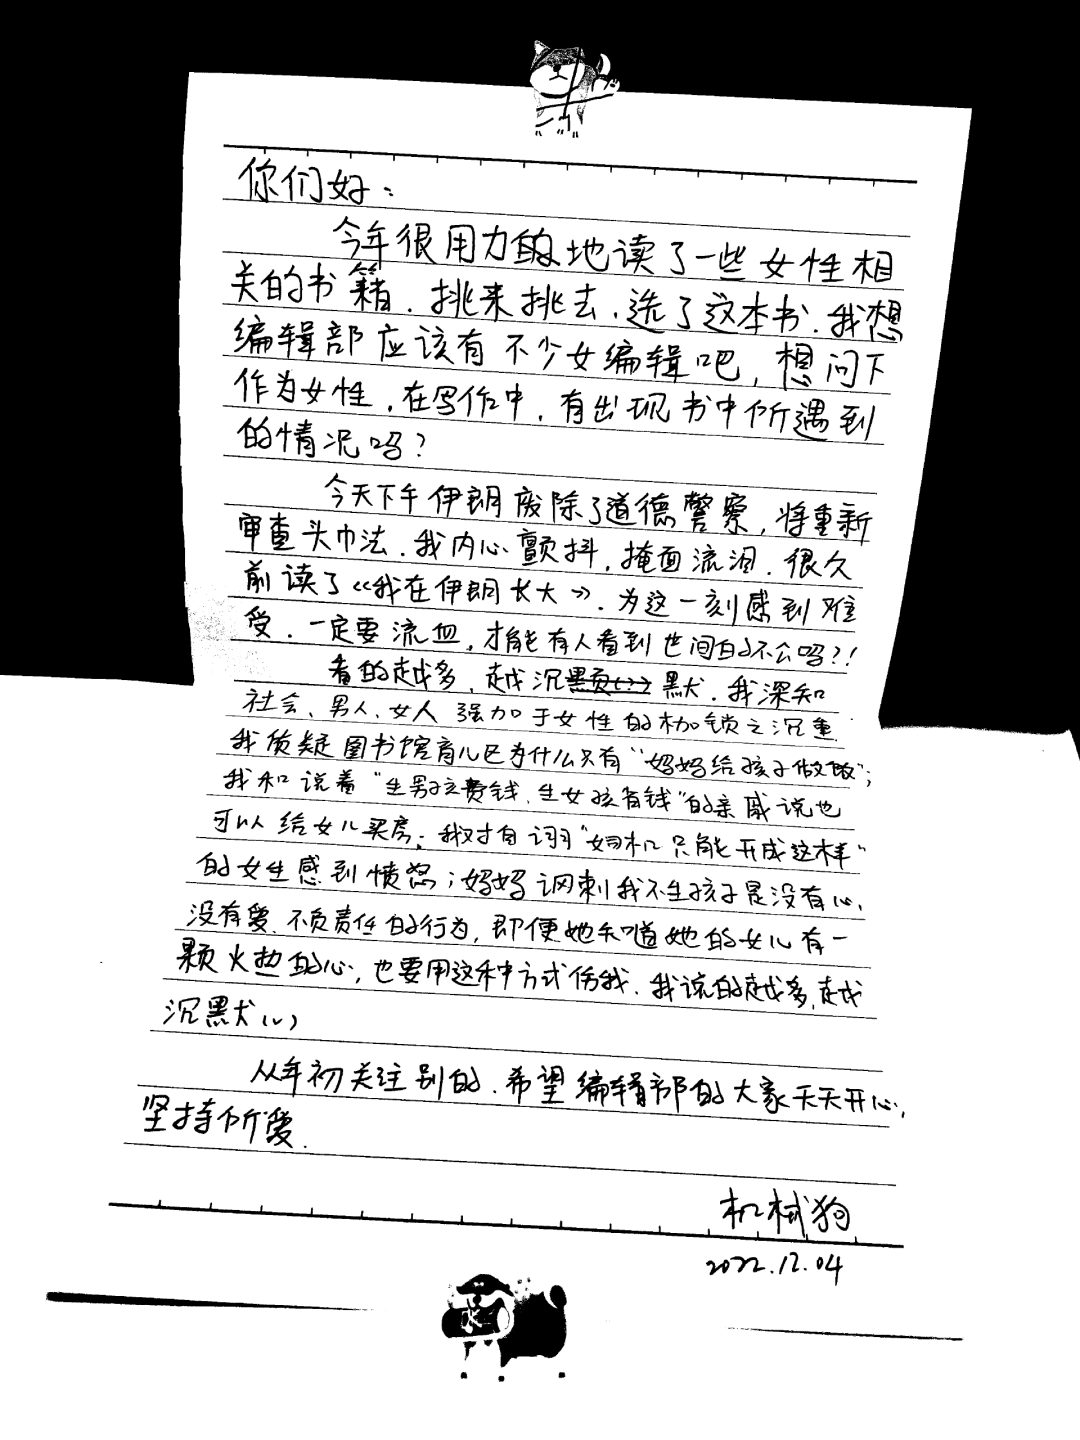 你们好：
今年很用力地读了一些女性相
关的书籍．挑来挑去，选了这本书．我想
编辑部应该有不少女编辑吧，想问下
作为女性，在写作中，有出现书中所遇到
的情况吗？
今天下午伊朗废除了道德警察，将重新
审查头巾法．我内心颤抖，掩面流泪．很久
前读了《我在伊朗长大》．为这一刻感到难
受．一定要流血，才能有人看到世间的不公吗？！
看的越多，越沉默．我深知
社会、男人、女人强加于女性的枷锁之沉重．
我质疑图书馆育儿区为什么只有“妈妈给孩子做饭”；
我和说着“生男孩费钱、生女孩有钱”的亲戚说也
可以给女儿买房；我对自诩“司机只能开成这样”
的女生感到愤怒；妈妈讽刺我不生孩子是没有心、
没有爱、不负责任的行为，即便她知道她的女儿有一
颗火热的心，也要用这种方式伤我．我说的越多，越
沉默（）
从年初关注别的．希望编辑部的大家天天开心，
坚持所爱．
机械狗
2022.12.04